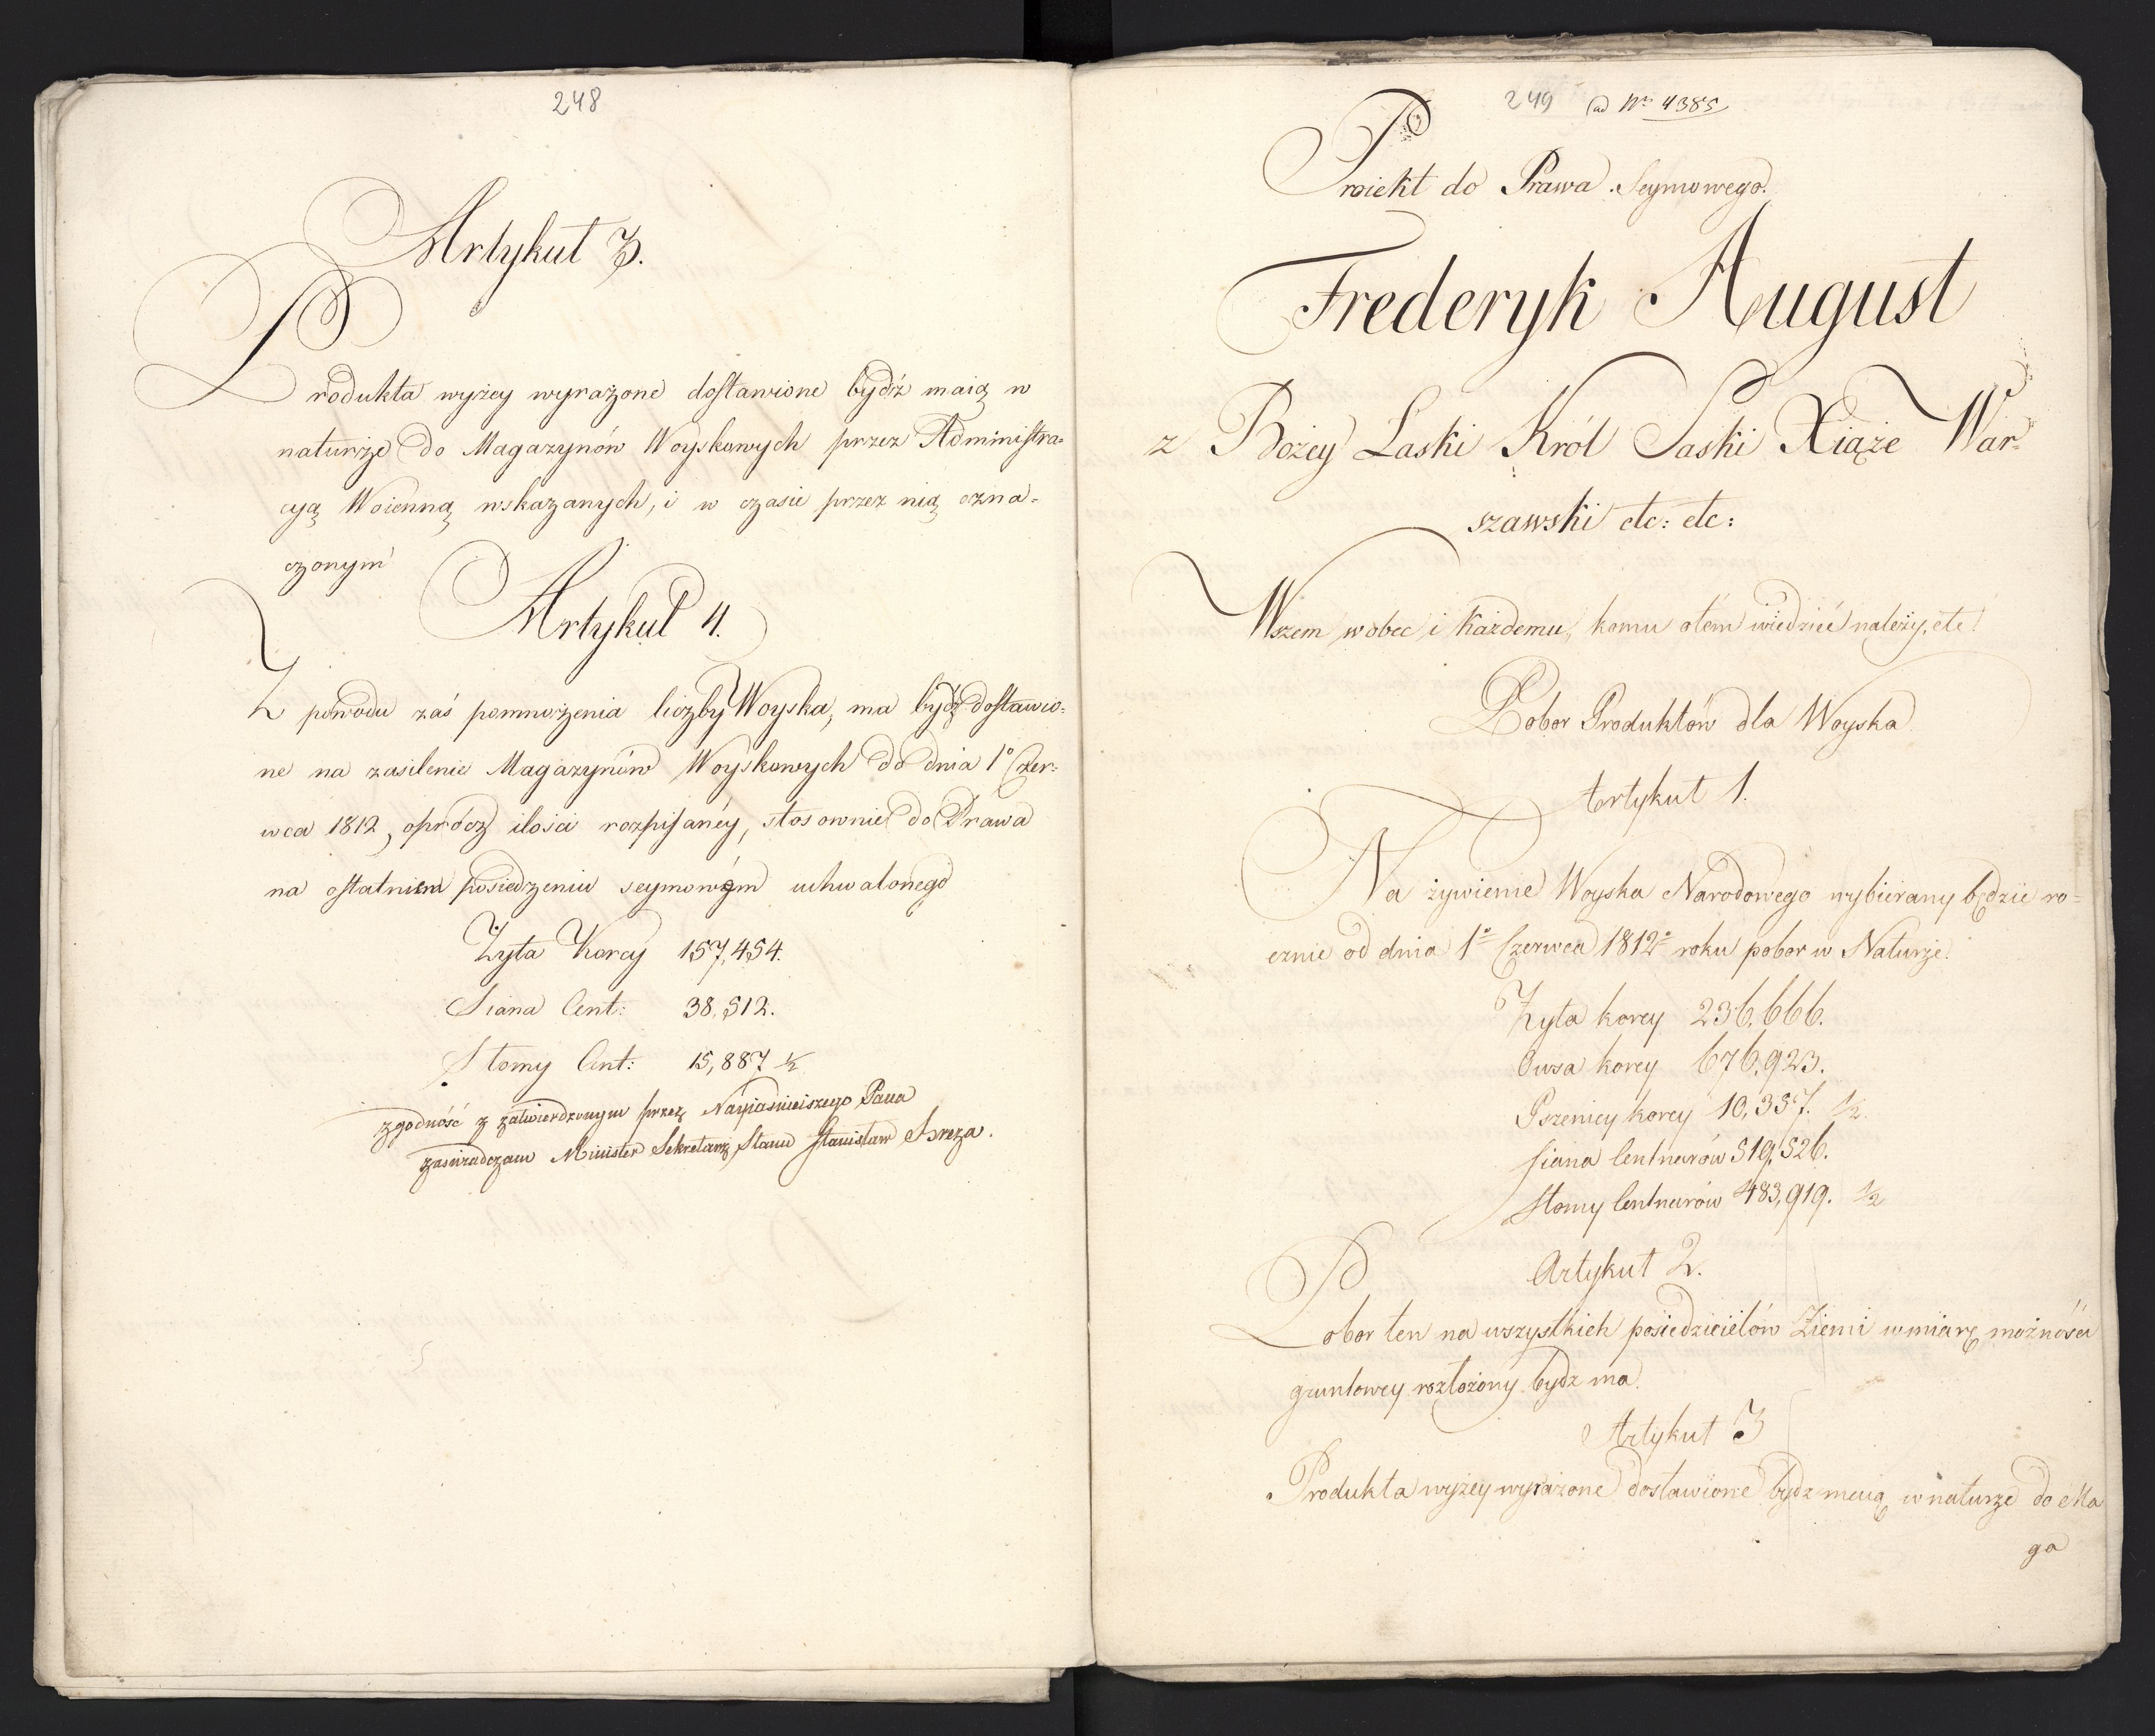 248
Artykuł 3.
Produkta wyżey wyrażone dostawione bydź maią w
naturze do Magazynów Woyskowych przez Administra=
cyą Woienną wskazanych, i w czasie przez nią ozna=
czonym
Artykuł 4.
Z powodu zaś pomnożenia liczby Woyska, ma bydź dostawio=
ne na zasilenie Magazynów Woyskowych do dnia 1o Czer=
wca 1812, oprócz ilości rozpisanéy, stosownie do Prawa
na ostatniem posiedzeniu seymowém uchwalonego
Żyta Korcy 157,454.
Siana Cent: 38,512.
Słomy Cent: 15,887 ½
zgodność z zatwierdzonym przez Nayiaśnieiszego Pana
zaświadczam Minister Sekretarz Stanu Stanisław Breza.
249 ad Nr 4385
Proiekt do Prawa Seymowego.
Frederyk August
z Bożey Łaski Król Saski Xiąże War=
szawski etc: etc:
Wszem wobec i Każdemu, komu otém wiedzieć należy, etc!
Pobor Produktów dla Woyska
Artykuł 1.
Na żywienie Woyska Narodowego wybierany będzie ro=
cznie od dnia 1o Czerwca 1812o roku pobor w Naturze.
Żyta korcy 236,666.
Owsa korcy 676,923.
Pszenicy korcy 10,337. ½.
siana Centnarów 519,526.
słomy Centnarów 483,919. ½
Artykuł 2.
Pobor ten na wszystkich posiedzicielów Ziemi w miarę możności
gruntowey rozłożony bydz ma.
Artykuł 3
Produkta wyżey wyrażone dostawione bydz maią w naturze do Ma
ga